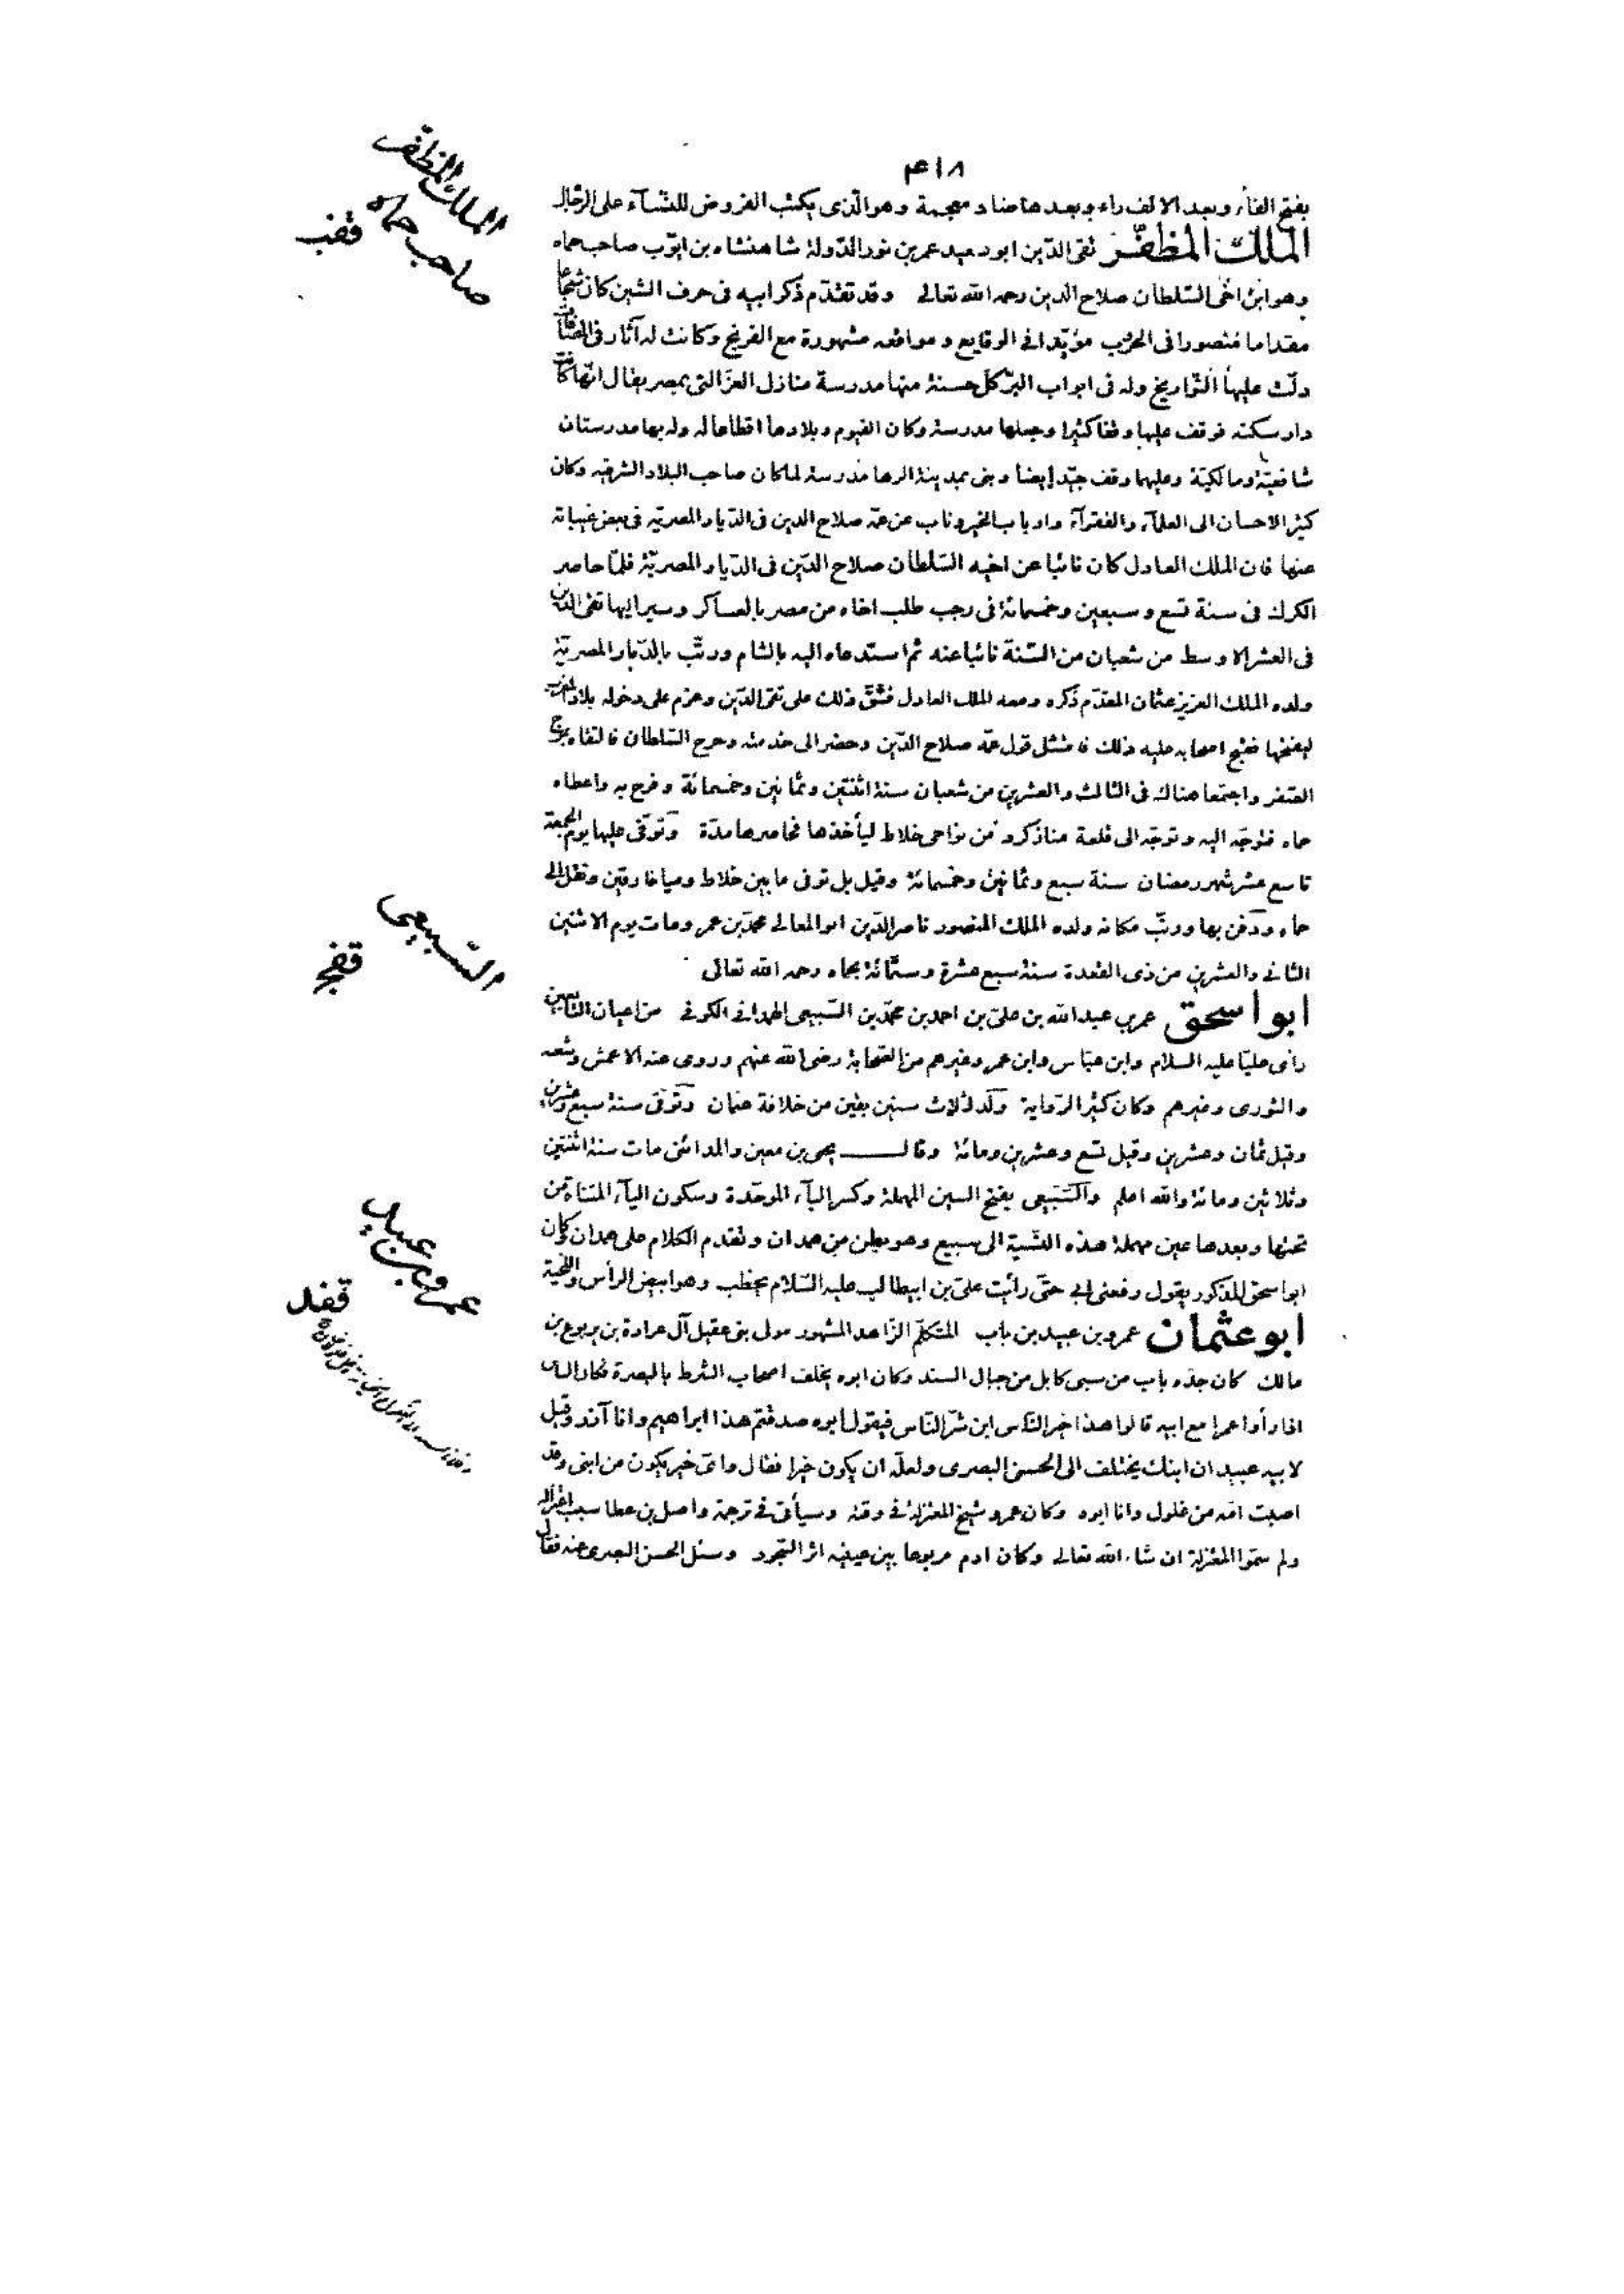 ٤١٨
بفتح الفاء وبعد الالف راء وبعدها ضاد معجمة وهو الذى يكتب الفروض للنسآء على الرجال
الملك المظفّر تقى الدّين ابو سعيد عمر بن نور الدّولة شاهنشاه بن ايّوب صاحب حماه
وهو ابن اخى السّلطان صلاح الدين رحمه الله تعالى وقد تقدّم ذكر ابيه فى حرف الشين كان شجاعا
مقداما منصورا فى الحرب مؤيّدا فى الوقايع ومواقفه مشهورة مع الفرنج وكانت له آثار فى المصافّات
دلّت عليها التّواريخ وله فى ابواب البرّ كلّ حسنة منها مدرسة منازل العزّ التى بمصر يقال انّها كانت
دار سكنه فوقف عليها وقفا كثيرا وجعلها مدرسة وكان الفيوم وبلادها اقطاعا له وله بها مدرستان
شافعيّة ومالكيّة وعليهما وقف جيّد ايضا وبنى بمدينة الرها مدرسة لما كان صاحب البلاد الشرقيه وكان
كثير الاحسان الى العلمآء والفقرآء وارباب الخير وناب عن عمّه صلاح الدين فى الدّيار المصريّه فى بعض غيباته
عنها فان الملك العادل كان نائبا عن اخيه السّلطان صلاح الدّين فى الدّيار المصريّة فلمّا حاصر
الكرك فى سنة تسع وسبعين وخمسمائة فى رجب طلب اخاه من مصر بالعساكر وسير اليها تقى الدّين
فى العشر الاوسط من شعبان من السّنة نائبا عنه ثم استدعاه اليه بالشام ورتّب بالدّيار المصريّة
ولده الملك العزيز عثمان المقدّم ذكره ومعه الملك العادل فشقّ ذلك على تقى الدّين وعزم على دخوله بلاد المغرب
ليفتحها فقبح اصحابه عليه ذلك فامتثل قول عمّه صلاح الدّين وحضر الى خدمته وخرج السّلطان فالتقاه بمرج
الصّفر واجتمعا هناك فى الثالث والعشرين من شعبان سنة اثنتين وثمانين وخمسمائة وفرح به واعطاه
حماه فتوجّه اليه وتوجّه الى قلعة منازكرد من نواحى خلاط ليأخذها فحاصرها مدّة وتوفّى عليها يوم الجمعة
تاسع عشر شهر رمضان سنة سبع وثمانين وخمسمائة وقيل بل توفى ما بين خلاط وميافارقين ونقل الى
حماه ودفن بها ورتّب مكانه ولده الملك المنصور ناصر الدّين ابو المعالى محمّد بن عمر ومات يوم الاثنين
الثانى والعشرين من ذى القعدة سنة سبع عشرة وستّمائة بحماه رحمه الله تعالى
ابو اسحق عمرو بن عبد الله بن علىّ بن احمد بن محمّد بن السّبيعى الهمدانى الكوفى من اعيان التّابعين
رأى عليّا عليه السلام وابن عبّاس وابن عمر وغيرهم من الصّحابة رضى الله عنهم وروى عنه الاعمش وشعبه
والثورى وغيرهم وكان كثير الرّواية ولد لثلاث سنين بقين من خلافة عثمان وتوفّى سنة سبع وعشرين
وقيل ثمان وعشرين وقيل تسع وعشرين ومائة وقال يحيى بن معين والمدائنى مات سنة اثنتين
وثلاثين ومائة والله اعلم والسّبيعى بفتح السين المهملة وكسر البآء الموحّدة وسكون اليآء المثنّاة من
تحتها وبعدها عين مهملة هذه النّسبة الى سبيع وهو بطن من همدان وتقدم الكلام على همدان وكان
ابو اسحق المذكور يقول رفعنى ابى حتّى رأيت علىّ بن ابيطالب عليه السّلام يخطب وهو ابيض الرأس واللّحية
ابو عثمان عمرو بن عبيد بن باب المتكلّم الزّاهد المشهور مولى بنى عقيل آل عرادة بن يربوع بن
مالك كان جدّه باب من سبى كابل من جبال السند وكان ابوه يخلف اصحاب الشرط بالبصرة فكان الناس
اذا رأوا عمرا مع ابيه قالوا هذا خير النّاس ابن شرّ النّاس فيقول ابوه صدقتم هذا ابراهيم وانا آذر وقيل
لابيه عبيد ان ابنك يختلف الى الحسن البصرى ولعلّه ان يكون خيرا فقال واىّ خير يكون من ابنى وقد
اصبت امّه من غلول وانا ابوه وكان عمرو شيخ المعتزلة فى وقته وسيأتى فى ترجمة واصل بن عطا سبب اعتزاله
ولم سمّوا المعتزلة ان شاء الله تعالى وكان ادم مربوعا بين عينيه اثر السّجود وسئل الحسن البصرى عنه فقال
الملك المظفر
صاحب حماه
قفب
السّبيعى
قفج
عمرو بن عبيد
قفد